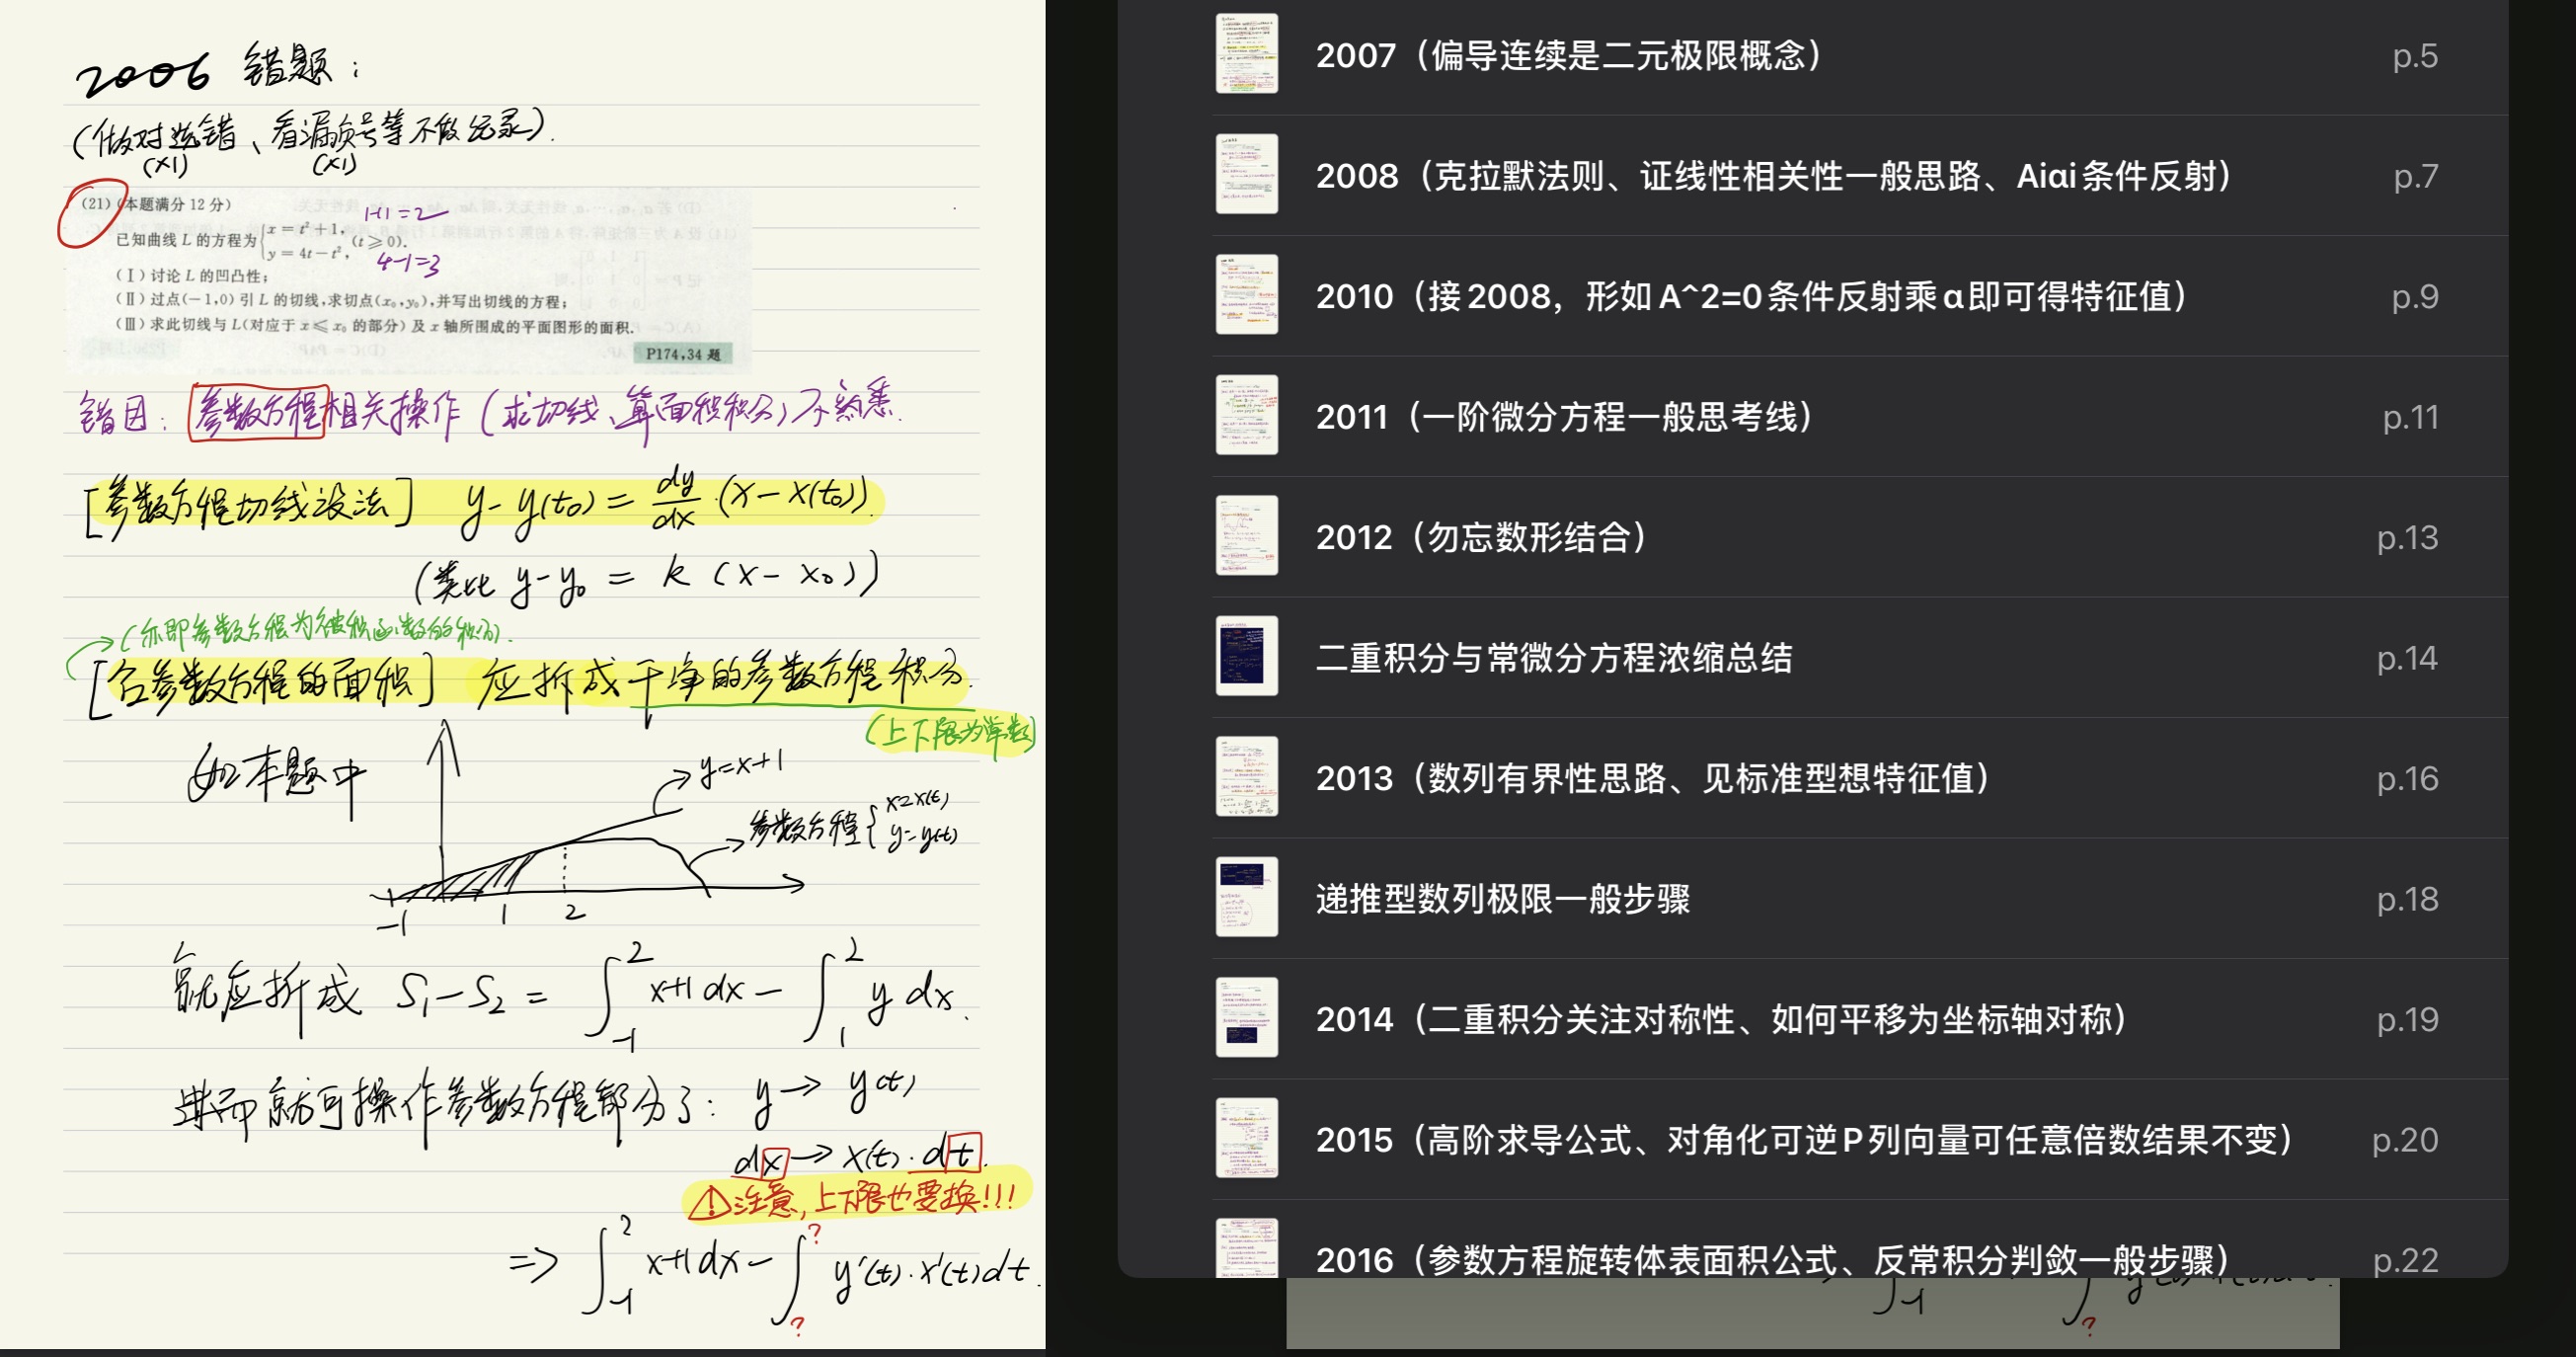 2006 错题：
（做对选错、看漏负号等不做记录）.
(×1) (×1)
(21)(本题满分 12 分)
1+1=2
已知曲线 L 的方程为{x = t²+1, y = 4t−t², (t⩾0).
4-1=3
(Ⅰ) 讨论 L 的凹凸性;
(Ⅱ) 过点(−1,0) 引 L 的切线,求切点(x₀,y₀),并写出切线的方程;
(Ⅲ) 求此切线与 L(对应于 x⩽x₀ 的部分) 及 x 轴所围成的平面图形的面积.
P174,34 题
错因：参数方程相关操作（求切线、算面积积分）不熟悉.
[参数方程切线设法] y-y(t₀) = dy/dx·(x-x(t₀)).
(类比 y-y₀ = k (x-x₀))
(亦即参数方程为被积函数的积分).
[含参数方程的面积] 应拆成干净的参数方程积分.
(上下限为单数)
如本题中
y=x+1
参数方程{x=x(t) y=y(t)
-1 1 2
就应拆成 S₁-S₂ = ∫₋₁² x+1 dx - ∫₁² y dx.
进而就可操作参数方程部分了： y→y(t)
dx→x(t)·dt.
⚠注意,上下限也要换!!!
=> ∫₋₁² x+1 dx - ∫?? y'(t)·x'(t)dt.
2007（偏导连续是二元极限概念） p.5
2008（克拉默法则、证线性相关性一般思路、Aiαi条件反射） p.7
2010（接2008，形如A^2=0条件反射乘α即可得特征值） p.9
2011（一阶微分方程一般思考线） p.11
2012（勿忘数形结合） p.13
二重积分与常微分方程浓缩总结 p.14
2013（数列有界性思路、见标准型想特征值） p.16
递推型数列极限一般步骤 p.18
2014（二重积分关注对称性、如何平移为坐标轴对称） p.19
2015（高阶求导公式、对角化可逆P列向量可任意倍数结果不变） p.20
2016（参数方程旋转体表面积公式、反常积分判敛一般步骤） p.22